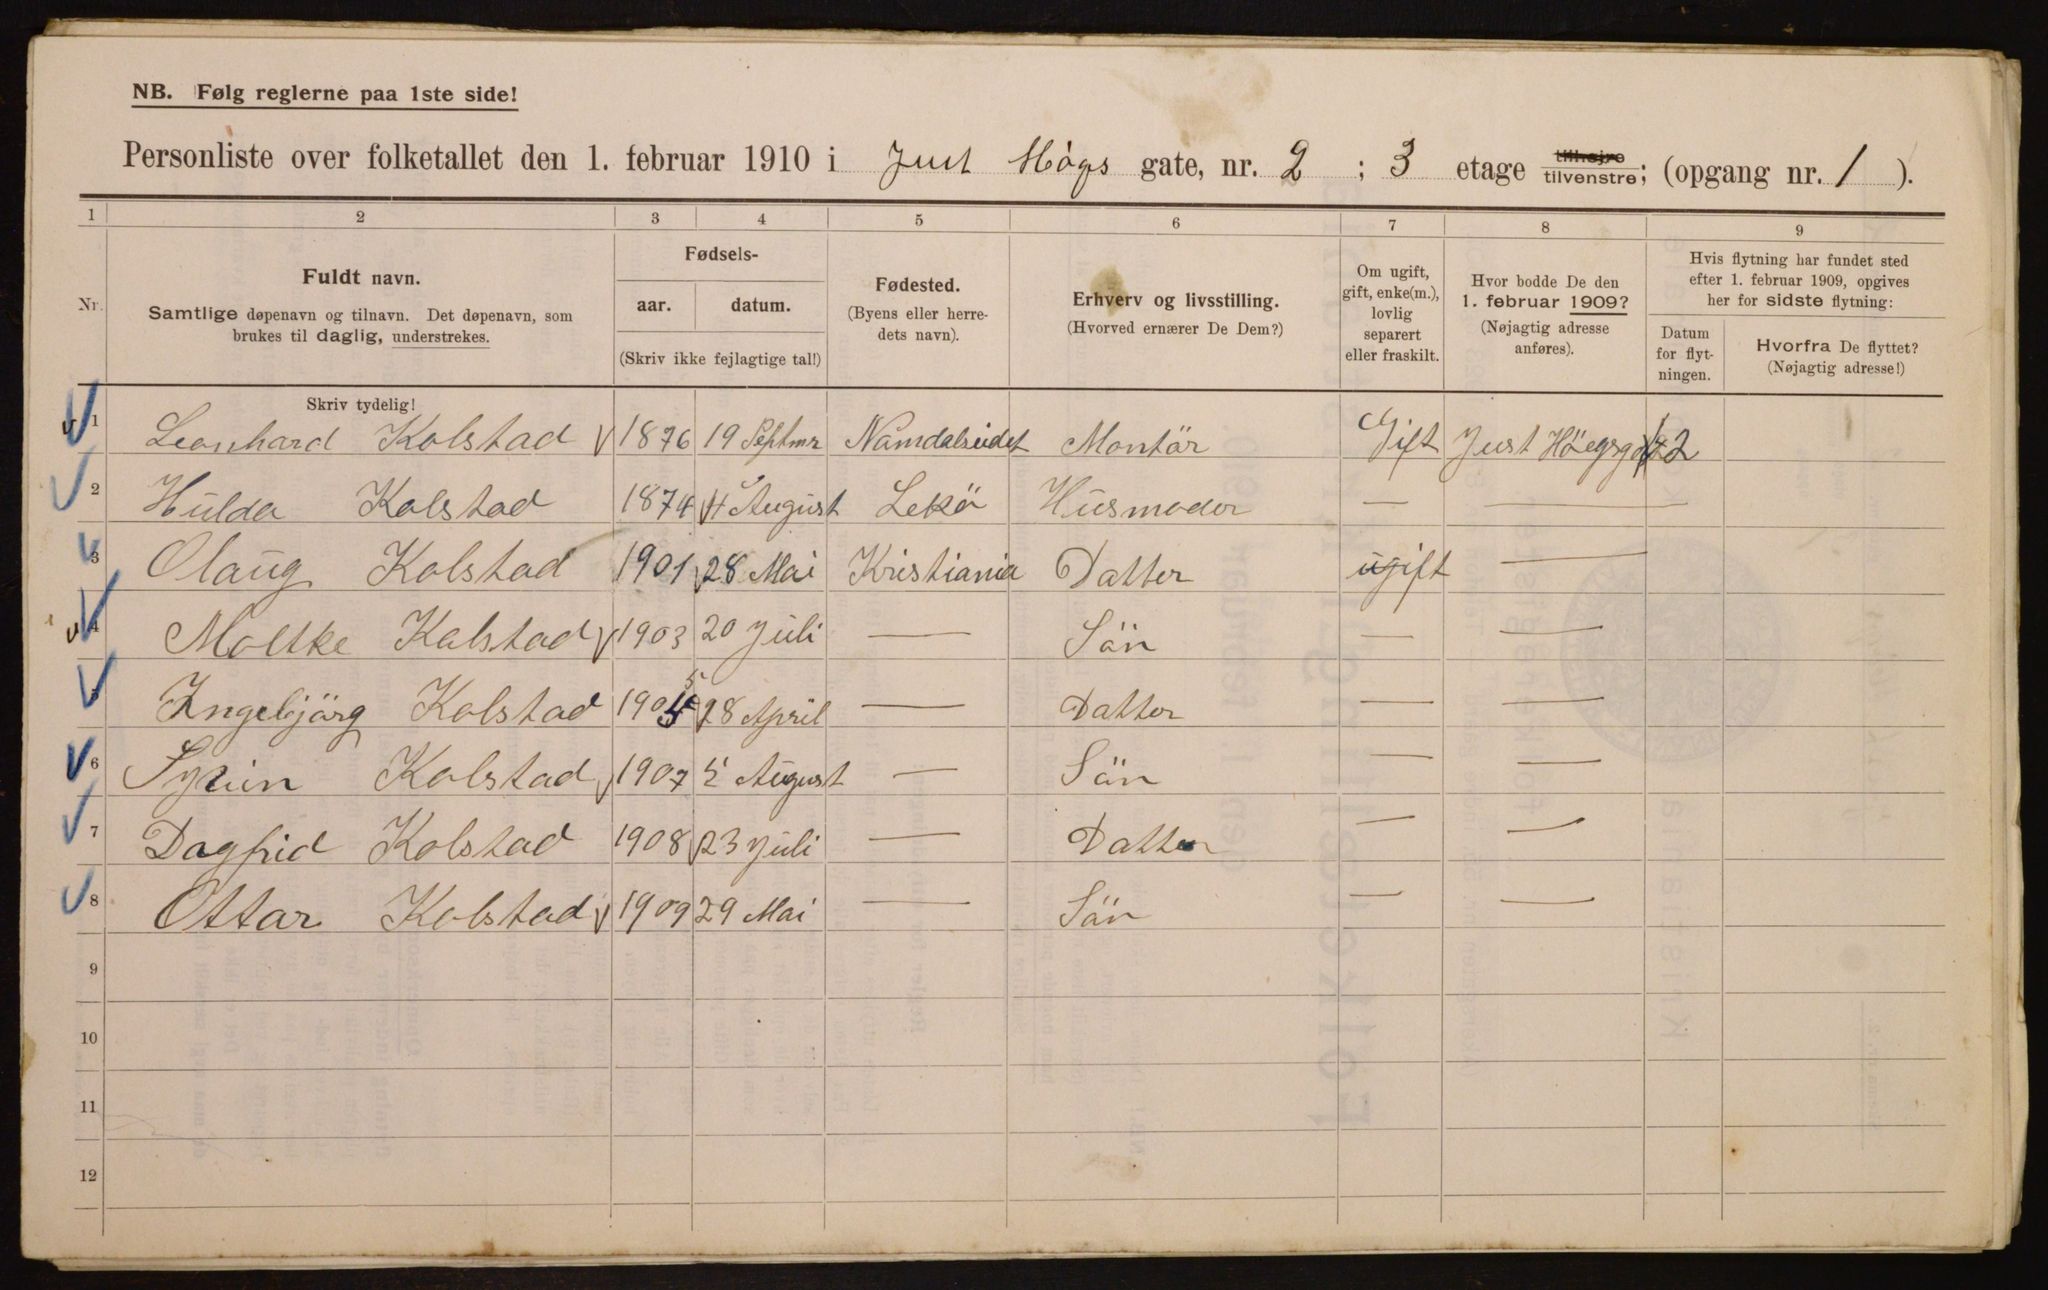 NB. Følg reglerne paa 1ste side!
Personliste over folketallet den 1. februar 1910 i Just Høgs gate, nr. 2 ; 3 etage tilhøjre tilvenstre; (opgang nr. 1 ).
1 2 3 4 5 6 7 8 9
Nr.
Fuldt navn.
Samtlige døpenavn og tilnavn. Det døpenavn, som
brukes til daglig, understrekes.
Skriv tydelig!
Fødsels-
aar. datum.
(Skriv ikke fejlagtige tal!)
Fødested.
(Byens eller herre-
dets navn).
Erhverv og livsstilling.
(Hvorved ernærer De Dem?)
Om ugift,
gift, enke(m.),
lovlig
separert
eller fraskilt.
Hvor bodde De den
1. februar 1909?
(Nøjagtig adresse
anføres).
Hvis flytning har fundet sted
efter 1. februar 1909, opgives
her for sidste flytning:
Datum
for flyt-
ningen.
Hvorfra De flyttet?
(Nøjagtig adresse!)
1 Leonhard Kolstad 1876 19 Septmr Namdalseidet Montör Gift Just Höegsgt 2
2 Hulda Kolstad 1874 4 August Lekö Husmoder — —
3 Olaug Kolstad 1901 28 Mai Kristiania Datter ugift —
4 Moltke Kolstad 1903 20 Juli — Sön — —
5 Ingebjörg Kolstad 1905 28 April — Datter — —
6 Kolstad 1907 5 August — Sön — —
7 Dagfrid Kolstad 1908 23 Juli — Datter — —
8 Ottar Kolstad 1909 29 Mai — Sön — —
9
10
11
12